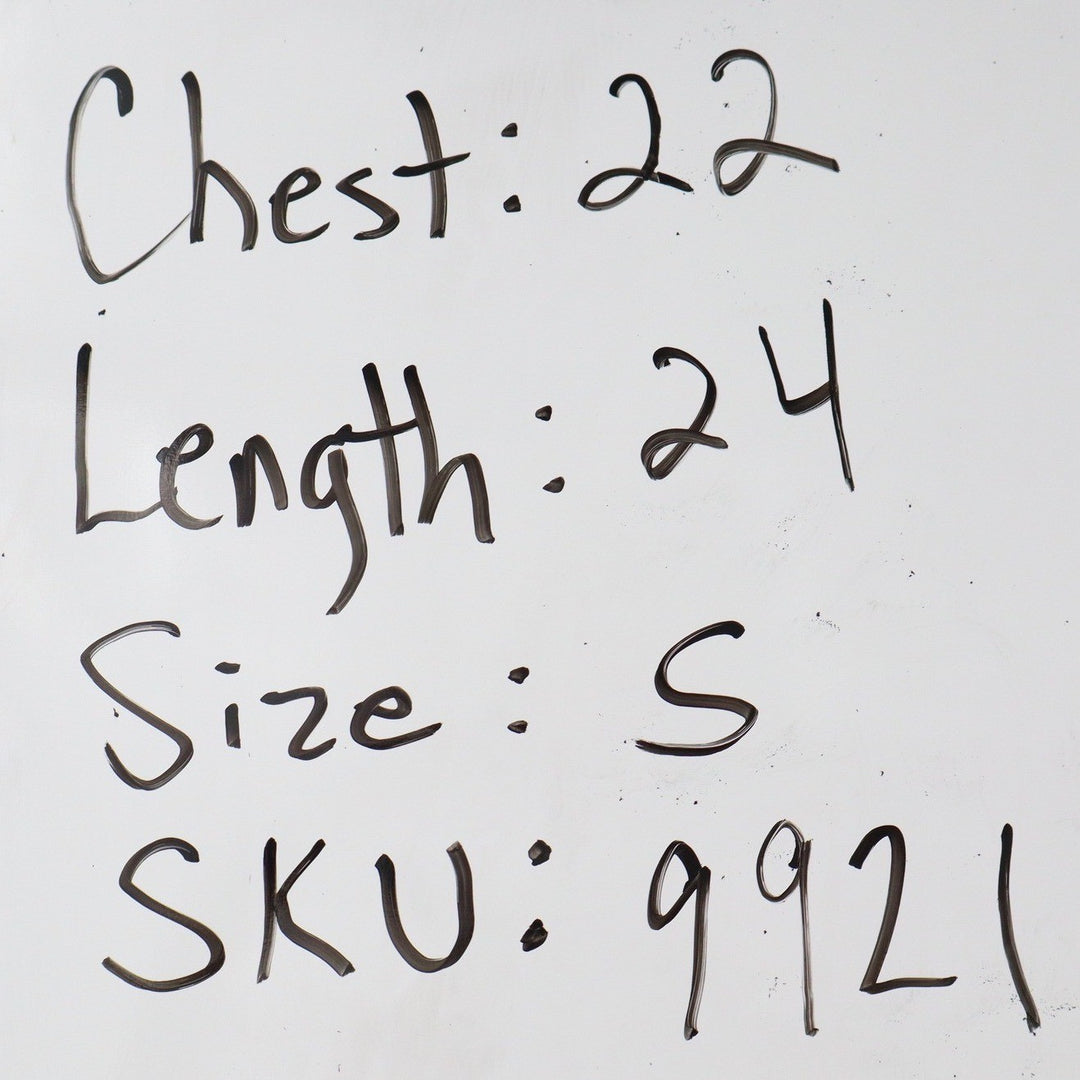 Chest: 22
Length: 24
Size: S
SKU: 9921